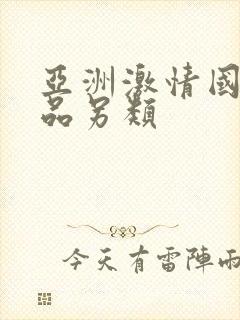 亞洲激情國
品另類
今天有雷陣雨